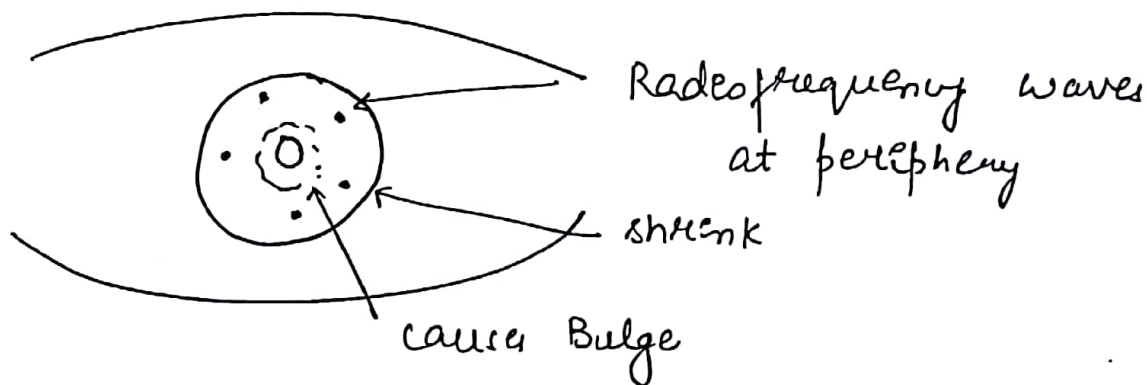 Radiofrequency waves
at periphery
shrink
causes Bulge